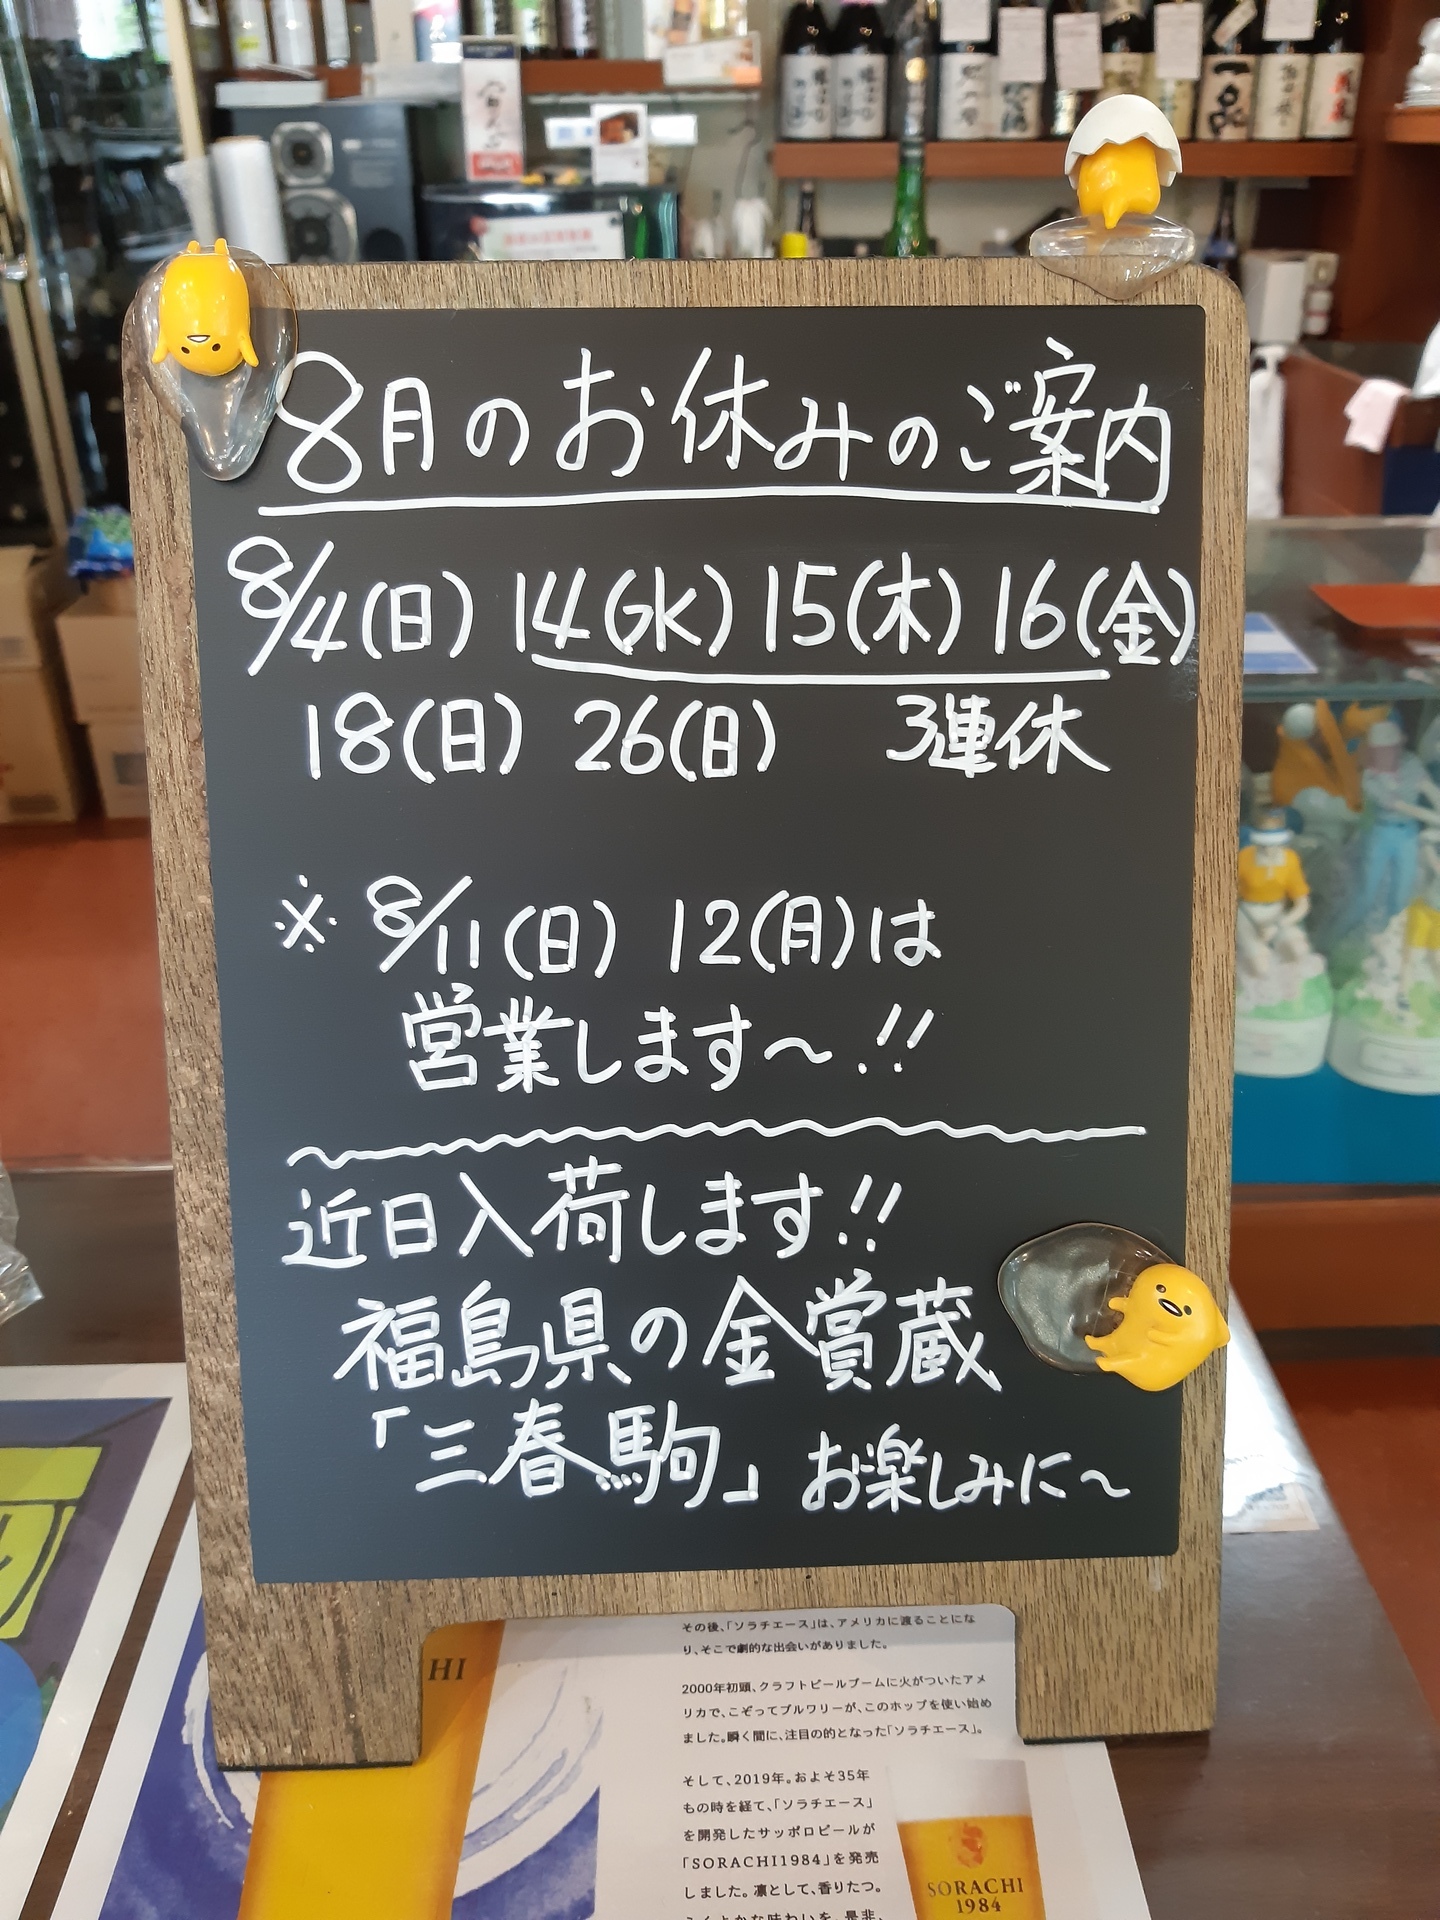 8月のお休みのご案内
8/4(日) 14(水) 15(木) 16(金)
18(日) 26(日) 3連休
※ 8/11(日) 12(月)は
営業します〜!!
近日入荷します!!
福島県の金賞蔵
「三春駒」お楽しみに〜
その後、「ソラチエース」は、アメリカに渡ることにな
り、そこで劇的な出会いがありました。
2000年初頭、クラフトビールブームに火がついたアメ
リカで、こぞってブルワリーが、このホップを使い始め
ました。瞬く間に、注目の的となった「ソラチエース」。
そして、2019年。およそ35年
もの時を経て、「ソラチエース」
を開発したサッポロビールが
「SORACHI1984」を発売
しました。凛として、香りたつ。
HI
SORACHI
1984